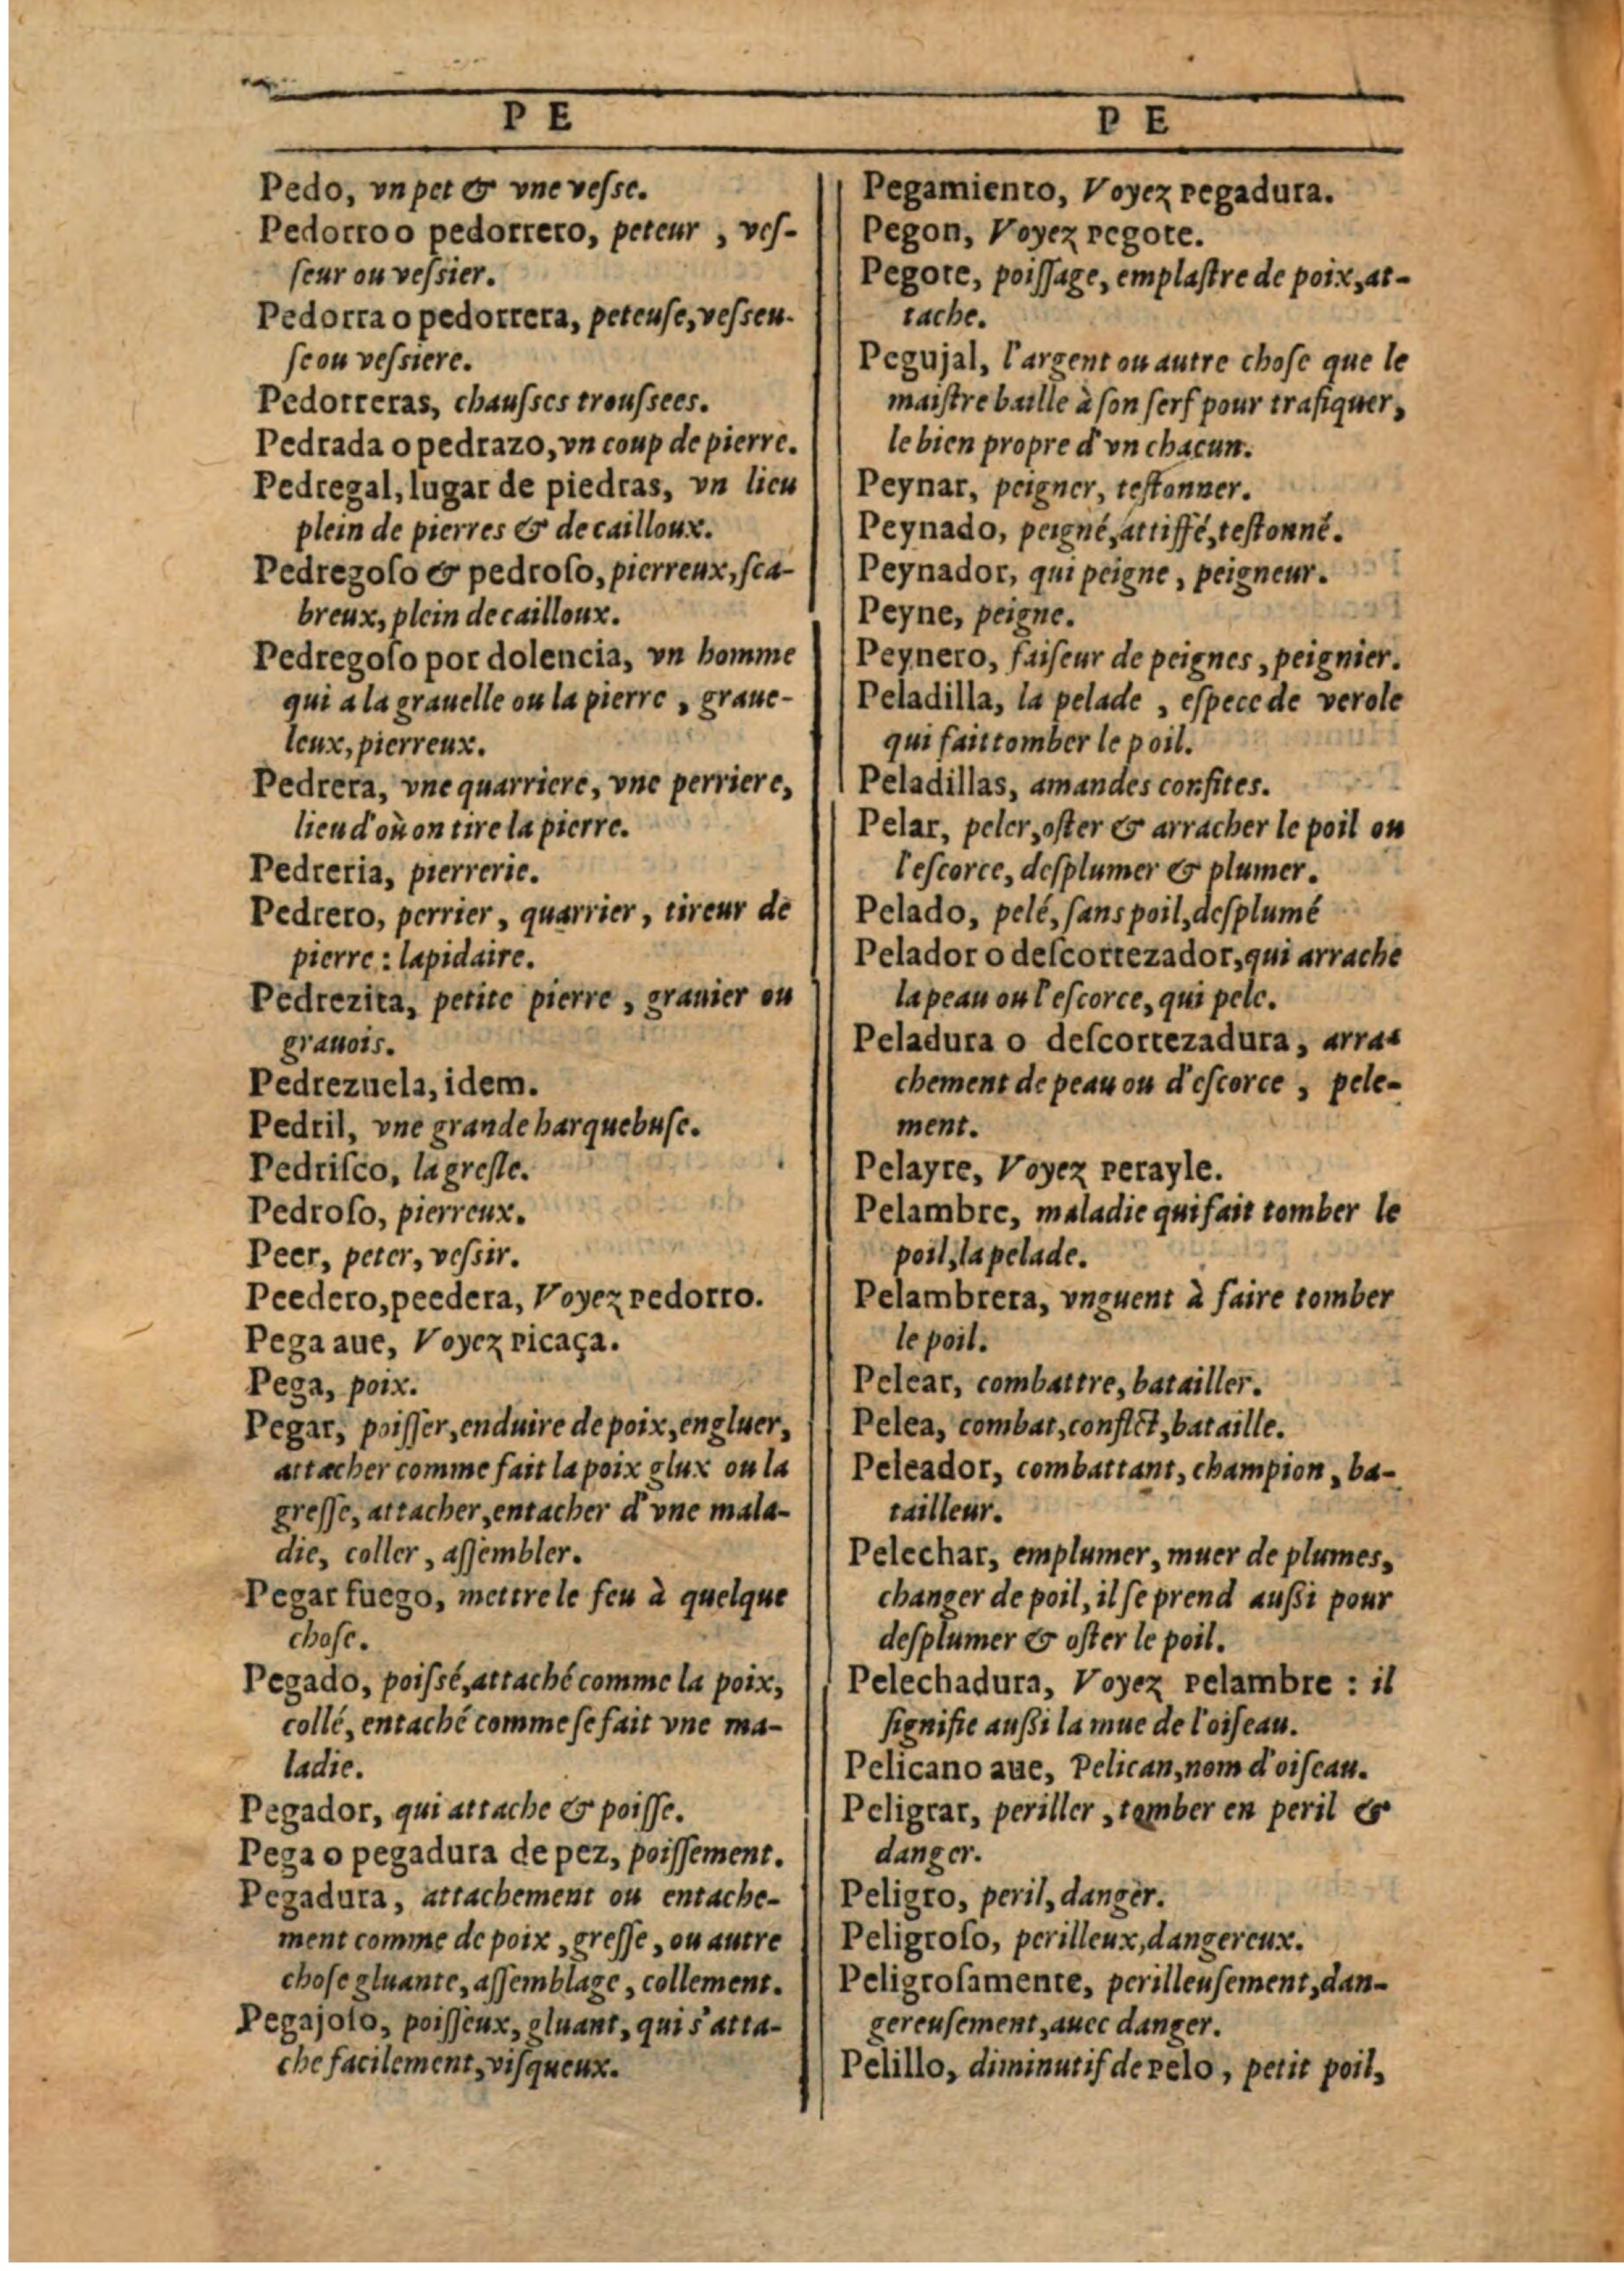 P E
Pedo, vn pet & vne vesse.
Pedorro o pedorrero, peteur, vesſ-
ſeur ou veſsier.
Pedorra o pedorrera, peteuſe, veſſeu-
ſe ou veſsiere.
Pedorreras, chauſses trouſsees.
Pedrada o pedrazo, vn coup de pierre.
Pedregal, lugar de piedras, vn lieu
plein de pierres & de cailloux.
Pedregoſo & pedroſo, pierreux, ſca-
breux, plein de cailloux.
Pedregoſo por dolencia, vn homme
qui a la grauelle ou la pierre, graue-
leux, pierreux.
Pedrera, vne quarriere, vne perriere,
lieu d'où on tire la pierre.
Pedreria, pierrerie.
Pedrero, perrier, quarrier, tireur de
pierre : lapidaire.
Pedrezita, petite pierre, grauier ou
grauois.
Pedrezuela, idem.
Pedril, vne grande harquebuſe.
Pedriſco, la greſle.
Pedroſo, pierreux.
Peer, peter, veſsir.
Peedero, peedera, Voyez pedorro.
Pega aue, Voyez picaça.
Pega, poix.
Pegar, poiſſer, enduire de poix, engluer,
attacher comme fait la poix glux ou la
greſſe, attacher, entacher d'vne mala-
die, coller, aſſembler.
Pegar fuego, mettre le feu à quelque
choſe.
Pegado, poiſsé, attaché comme la poix,
collé, entaché comme ſe fait vne ma-
ladie.
Pegador, qui attache & poiſſe.
Pega o pegadura de pez, poiſſement.
Pegadura, attachement ou entache-
ment comme de poix, greſſe, ou autre
choſe gluante, aſſemblage, collement.
Pegajoſo, poiſſeux, gluant, qui s'atta-
che facilement, viſqueux.
P E
Pegamiento, Voyez pegadura.
Pegon, Voyez pegote.
Pegote, poiſſage, emplaſtre de poix, at-
tache.
Pegujal, l'argent ou autre choſe que le
maiſtre baille à ſon ſerf pour trafiquer,
le bien propre d'vn chacun.
Peynar, peigner, teſtonner.
Peynado, peigné, attiffé, teſtonné.
Peynador, qui peigne, peigneur.
Peyne, peigne.
Peynero, faiſeur de peignes, peignier.
Peladilla, la pelade, eſpece de verole
qui fait tomber le poil.
Peladillas, amandes confites.
Pelar, peler, oſter & arracher le poil ou
l'eſcorce, deſplumer & plumer.
Pelado, pelé, ſans poil, deſplumé
Pelador o deſcortezador, qui arrache
la peau ou l'eſcorce, qui pele.
Peladura o deſcortezadura, arra-
chement de peau ou d'eſcorce, pele-
ment.
Pelayre, Voyez perayle.
Pelambre, maladie qui fait tomber le
poil, la pelade.
Pelambrera, vnguent à faire tomber
le poil.
Pelear, combattre, batailler.
Pelea, combat, conflict, bataille.
Peleador, combattant, champion, ba-
tailleur.
Pelechar, emplumer, muer de plumes,
changer de poil, il ſe prend auſsi pour
deſplumer & oſter le poil.
Pelechadura, Voyez pelambre : il
ſignifie auſsi la mue de l'oiſeau.
Pelicano aue, Pelican, nom d'oiſeau.
Peligrar, periller, tomber en peril &
danger.
Peligro, peril, danger.
Peligroſo, perilleux, dangereux.
Peligroſamente, perilleuſement, dan-
gereuſement, auec danger.
Pelillo, diminutif de pelo, petit poil,